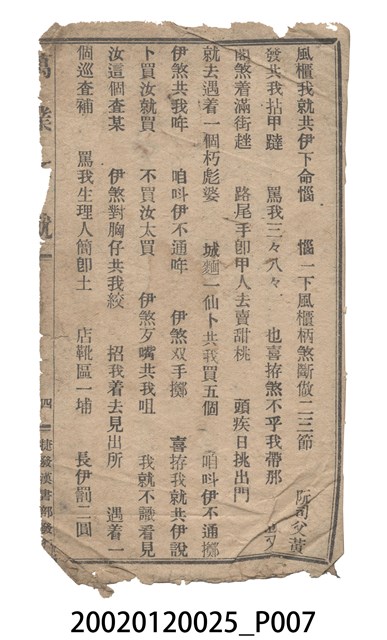 風櫃我就共伊下命惱 惱一下風櫃柄煞斷做二三節 阮司父黃
發共我拈甲躂 罵我三々八々 也喜拵煞不乎我帶那
閣煞着滿街趖 路尾手卽甲人去賣甜桃 頭疾日挑出門
就去遇着一個朽彪婆 城麵一仙卜共我買五個 咱呌伊不通擲
伊煞共我哖 咱呌伊不通哖 伊煞双手擲 喜拵我就共伊說
卜買汝就買 不買汝太買 伊煞歹嘴共我咀 我就不識看見
汝這個查某 伊煞對胸仔共我絞 招我着去見出所 遇着一
個巡查補 罵我生理人簡卽土 店靴區一埔 長伊罰二圓
四 捷發漢書部
20020120025_P007